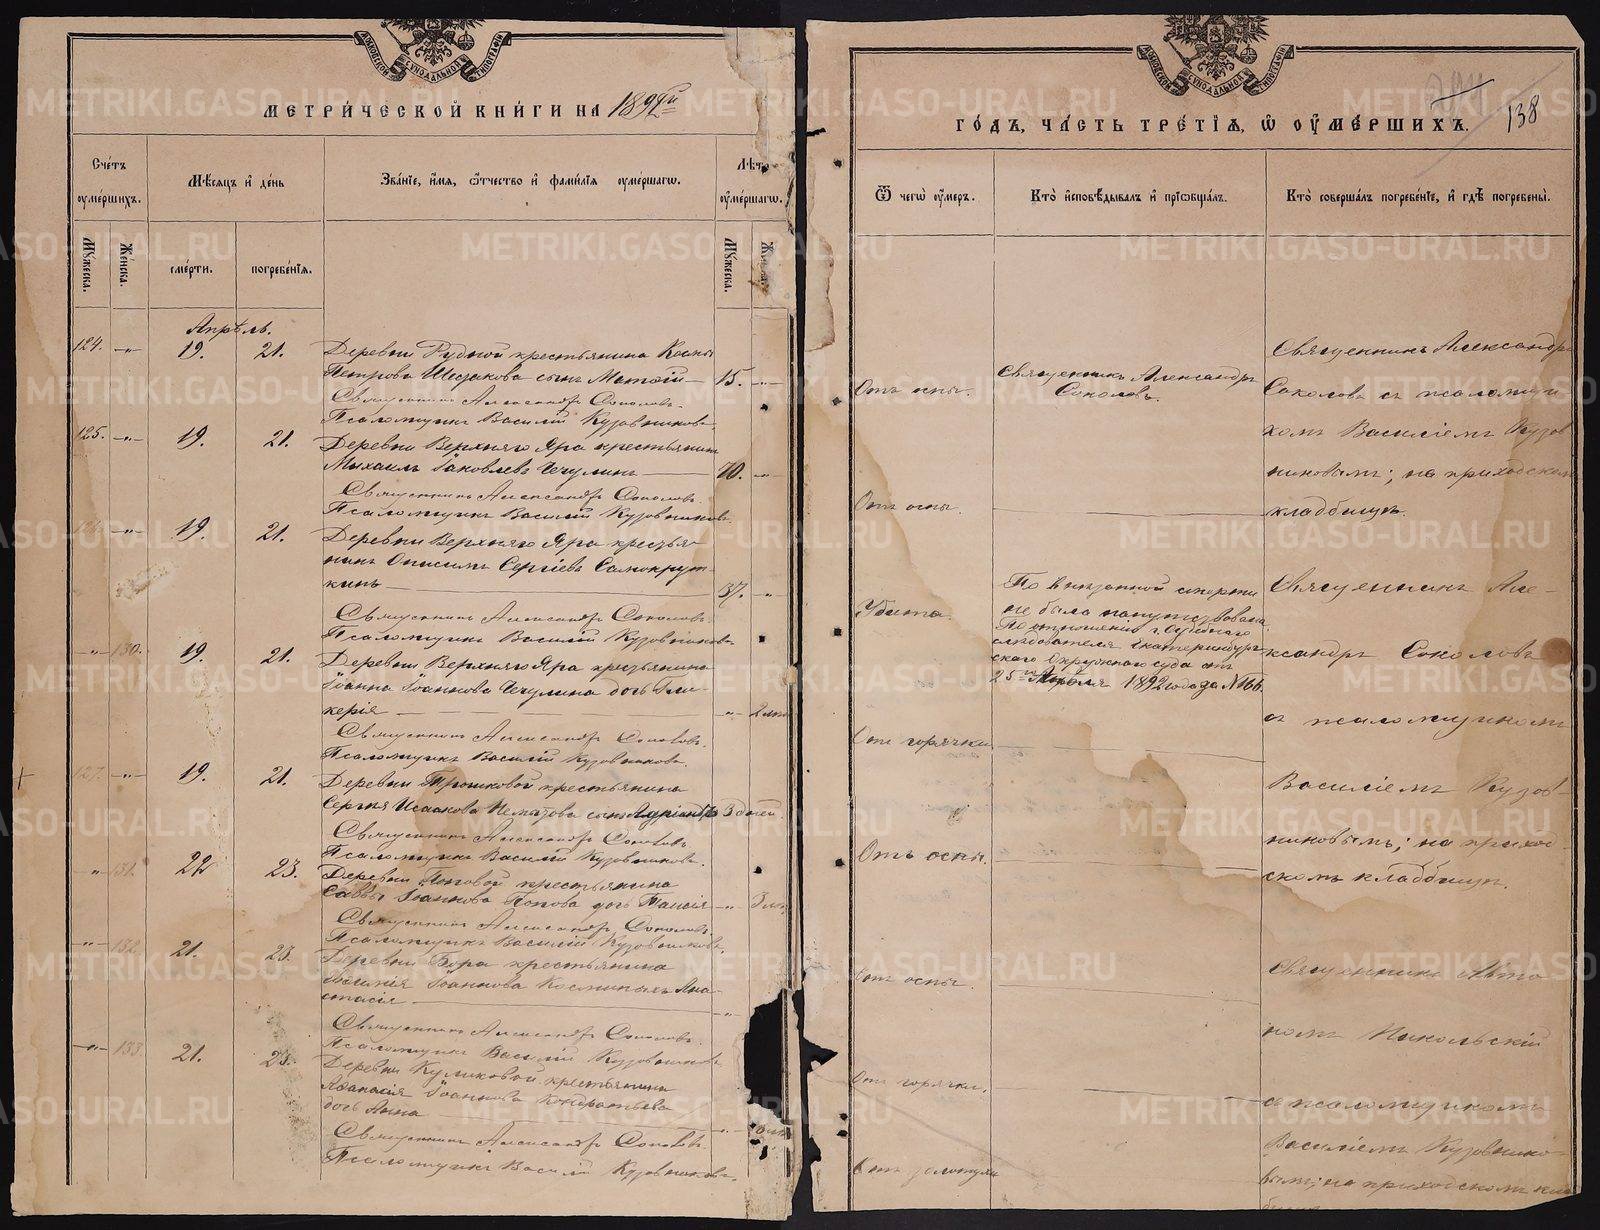 МЕТРИЧЕСКОЙ КНИГИ НА 1892й
Счетъ умершихъ.
Мѣсяцъ и день
Званіе, имя, отчество и фамилія умершаго.
Лѣта умершаго.
Мужеска.
Женска.
смерти.
погребенія.
Мужеска.
Апрѣль.
124. -"- 19. 21. Деревни Рудной крестьянина Козмы
Петрова Шесхакова сынъ 15. -"-
Священникъ Александръ Соколовъ.
Псаломщикъ Василій Кузовниковъ.
125. -"- 19. 21. Деревни Верхняго Яра крестьянинъ
Михаилъ Іаковлевъ Чечулинъ 70. -"-
Священникъ Александръ Соколовъ.
Псаломщикъ Василій Кузовниковъ.
126. -"- 19. 21. Деревни Верхняго Яра крестья-
нинъ Онисимъ Сергіевъ Самокрут-
кинъ 37. "
Священникъ Александръ Соколовъ.
Псаломщикъ Василій Кузовниковъ.
-"- 130. 19. 21. Деревни Верхняго Яра крестьянина
Іоанна Іоаннова Чечулина дочь Гли-
керія -"- 2
Священникъ Александръ Соколовъ.
Псаломщикъ Василій Кузовниковъ.
127. -"- 19. 21. Деревни Трошковой крестьянина
Сергія Исаакова сынъ 3 дней
Священникъ Александръ Соколовъ
Псаломщикъ Василій Кузовниковъ.
" 131. 22 23. Деревни Поповой крестьянина
Саввы Іоаннова Попова дочь Таисія -"- 3
Священникъ Александръ Соколовъ.
Псаломщикъ Василій Кузовниковъ.
-"- 132. 21. 23. Деревни Бора крестьянина
Іоаннова Ана-
стасія -"-
Священникъ Александръ Соколовъ.
Псаломщикъ Василій Кузовниковъ
-"- 133. 21. 23. Деревни Куликовой крестьянина
Аѳанасія Іоаннова Кондратьева
дочь Анна -"-
Священникъ Александръ Соколовъ
Псаломщикъ Василій Кузовниковъ.
МОСКОВСКОЙ СѴНОДАЛЬНОЙ ТИПОГРАФІИ
ГОДЪ, ЧАСТЬ ТРЕТІЯ, Ѡ ОУМЕРШИХЪ.
138
Ѿ чегѡ умеръ.
Кто исповѣдывалъ и пріобщалъ.
Кто совершалъ погребеніе, и гдѣ погребены.
Отъ оспы.
Священникъ Александръ
Соколовъ.
Священникъ Александръ
Соколовъ съ псаломщи
комъ Василіемъ Кузов
никовымъ; на приходскомъ
кладбищѣ.
Отъ оспы.
Убитъ
По внезапной смерти
не былъ напутствованъ.
По отношенію г. Судебнаго
слѣдователя Екатеринбург
скаго Окружнаго суда отъ
25го Апрѣля 1892 года за № 166.
Священникъ Але-
ксандръ Соколовъ
съ псаломщикомъ
Василіемъ Кузов-
никовымъ; на приход-
скомъ кладбищѣ.
Отъ горячки
Отъ оспы.
Отъ оспы.
Отъ горячки.
Отъ золотухи
Священникъ Анто
Никольскій
съ псаломщикомъ
Василіемъ Кузовнико-
вымъ; на приходскомъ кла
METRIKI.GASO-URAL.RU